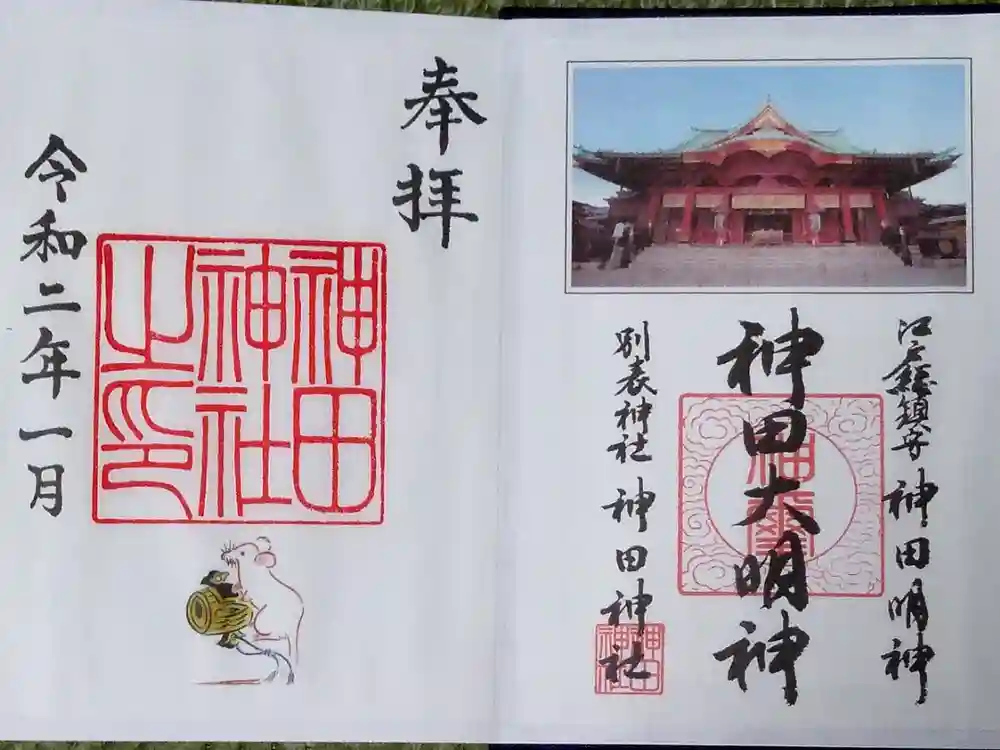 江戸總鎮守 神田明神
神田大明神
神璽
別表神社 神田神社
神田神社
奉拝
神田
神社
之印
令和二年一月